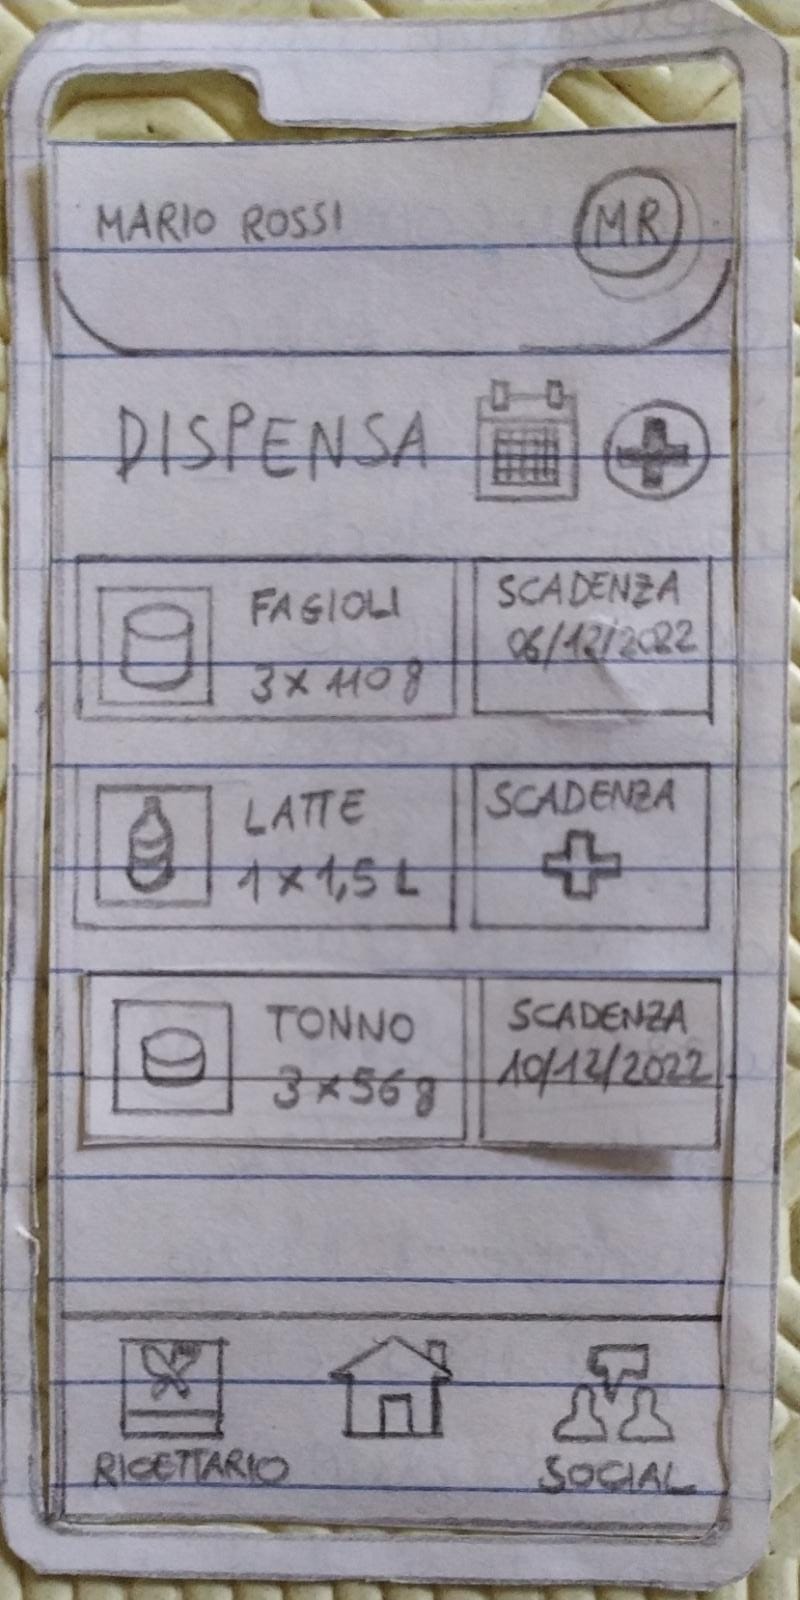 MARIO ROSSI
MR
DISPENSA
FAGIOLI
3 x 110 g
SCADENZA
06/12/2022
LATTE
1 x 1,5 L
SCADENZA
TONNO
3 x 56 g
SCADENZA
10/12/2022
RICETTARIO
SOCIAL